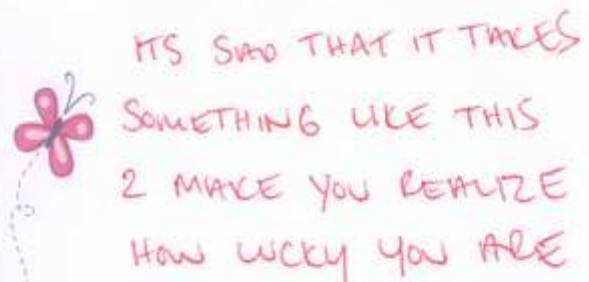 ITS SAD THAT IT TAKES
SOMETHING LIKE THIS
2 MAKE YOU REALIZE
HOW LUCKY YOU ARE